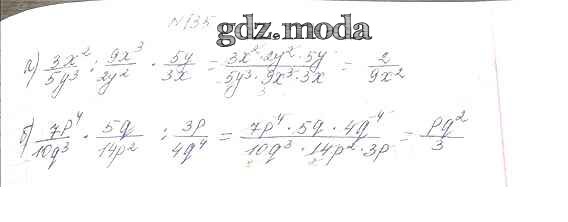 N 135
gdz.moda
а) 3x²/5y³ : 9x³/2y² · 5y/3x = 3x²·2y²·5y/5y³·9x³·3x = 2/9x²
б) 7p⁴/10q³ · 5q/14p² : 3p/4q⁴ = 7p⁴·5q·4q⁴/10q³·14p²·3p = pq²/3